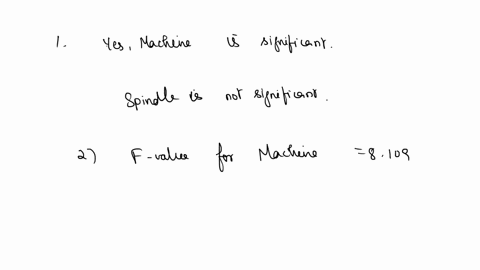 1. Yes, Machine is significant.
Spindle is not significant.
2) F-value for Machine = 8.109